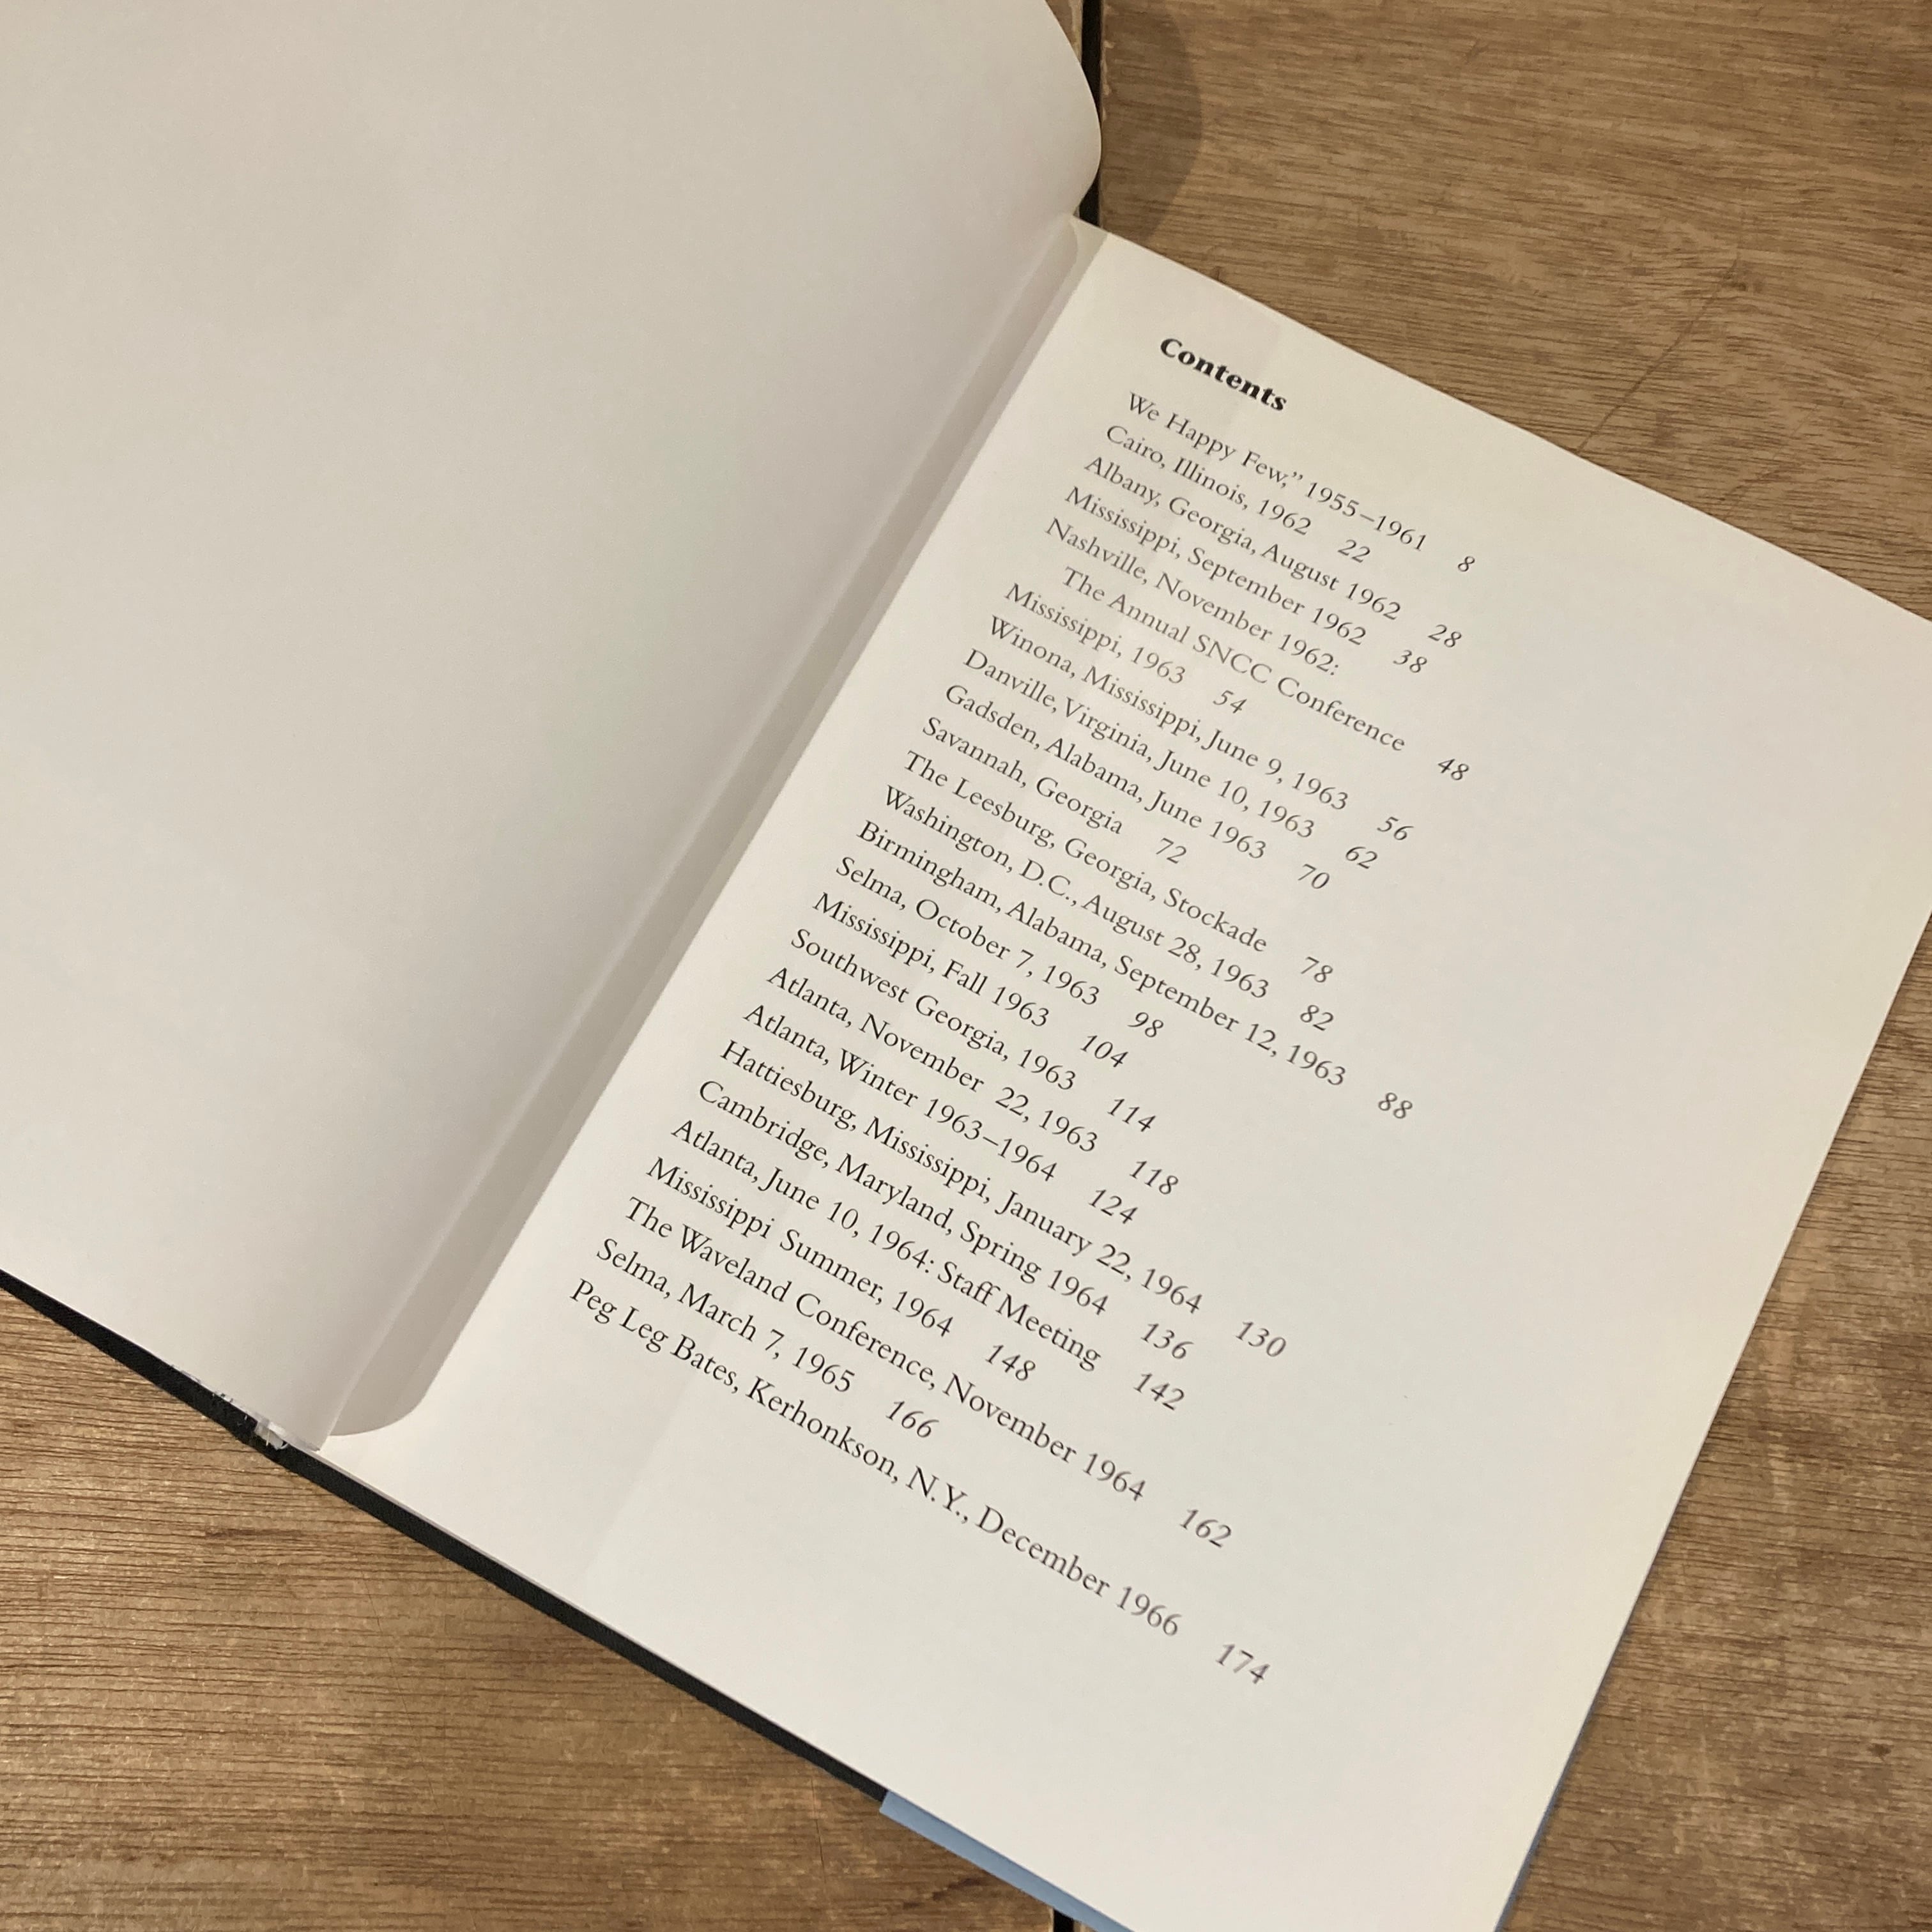 Contents
We Happy Few,” 1955–1961 8
Cairo, Illinois, 1962 22
Albany, Georgia, August 1962 28
Mississippi, September 1962 38
Nashville, November 1962:
The Annual SNCC Conference 48
Mississippi, 1963 54
Winona, Mississippi, June 9, 1963 56
Danville, Virginia, June 10, 1963 62
Gadsden, Alabama, June 1963 70
Savannah, Georgia 72
The Leesburg, Georgia, Stockade 78
Washington, D.C., August 28, 1963 82
Birmingham, Alabama, September 12, 1963 88
Selma, October 7, 1963 98
Mississippi, Fall 1963 104
Southwest Georgia, 1963 114
Atlanta, November 22, 1963 118
Atlanta, Winter 1963–1964 124
Hattiesburg, Mississippi, January 22, 1964 130
Cambridge, Maryland, Spring 1964 136
Atlanta, June 10, 1964: Staff Meeting 142
Mississippi Summer, 1964 148
The Waveland Conference, November 1964 162
Selma, March 7, 1965 166
Peg Leg Bates, Kerhonkson, N.Y., December 1966 174